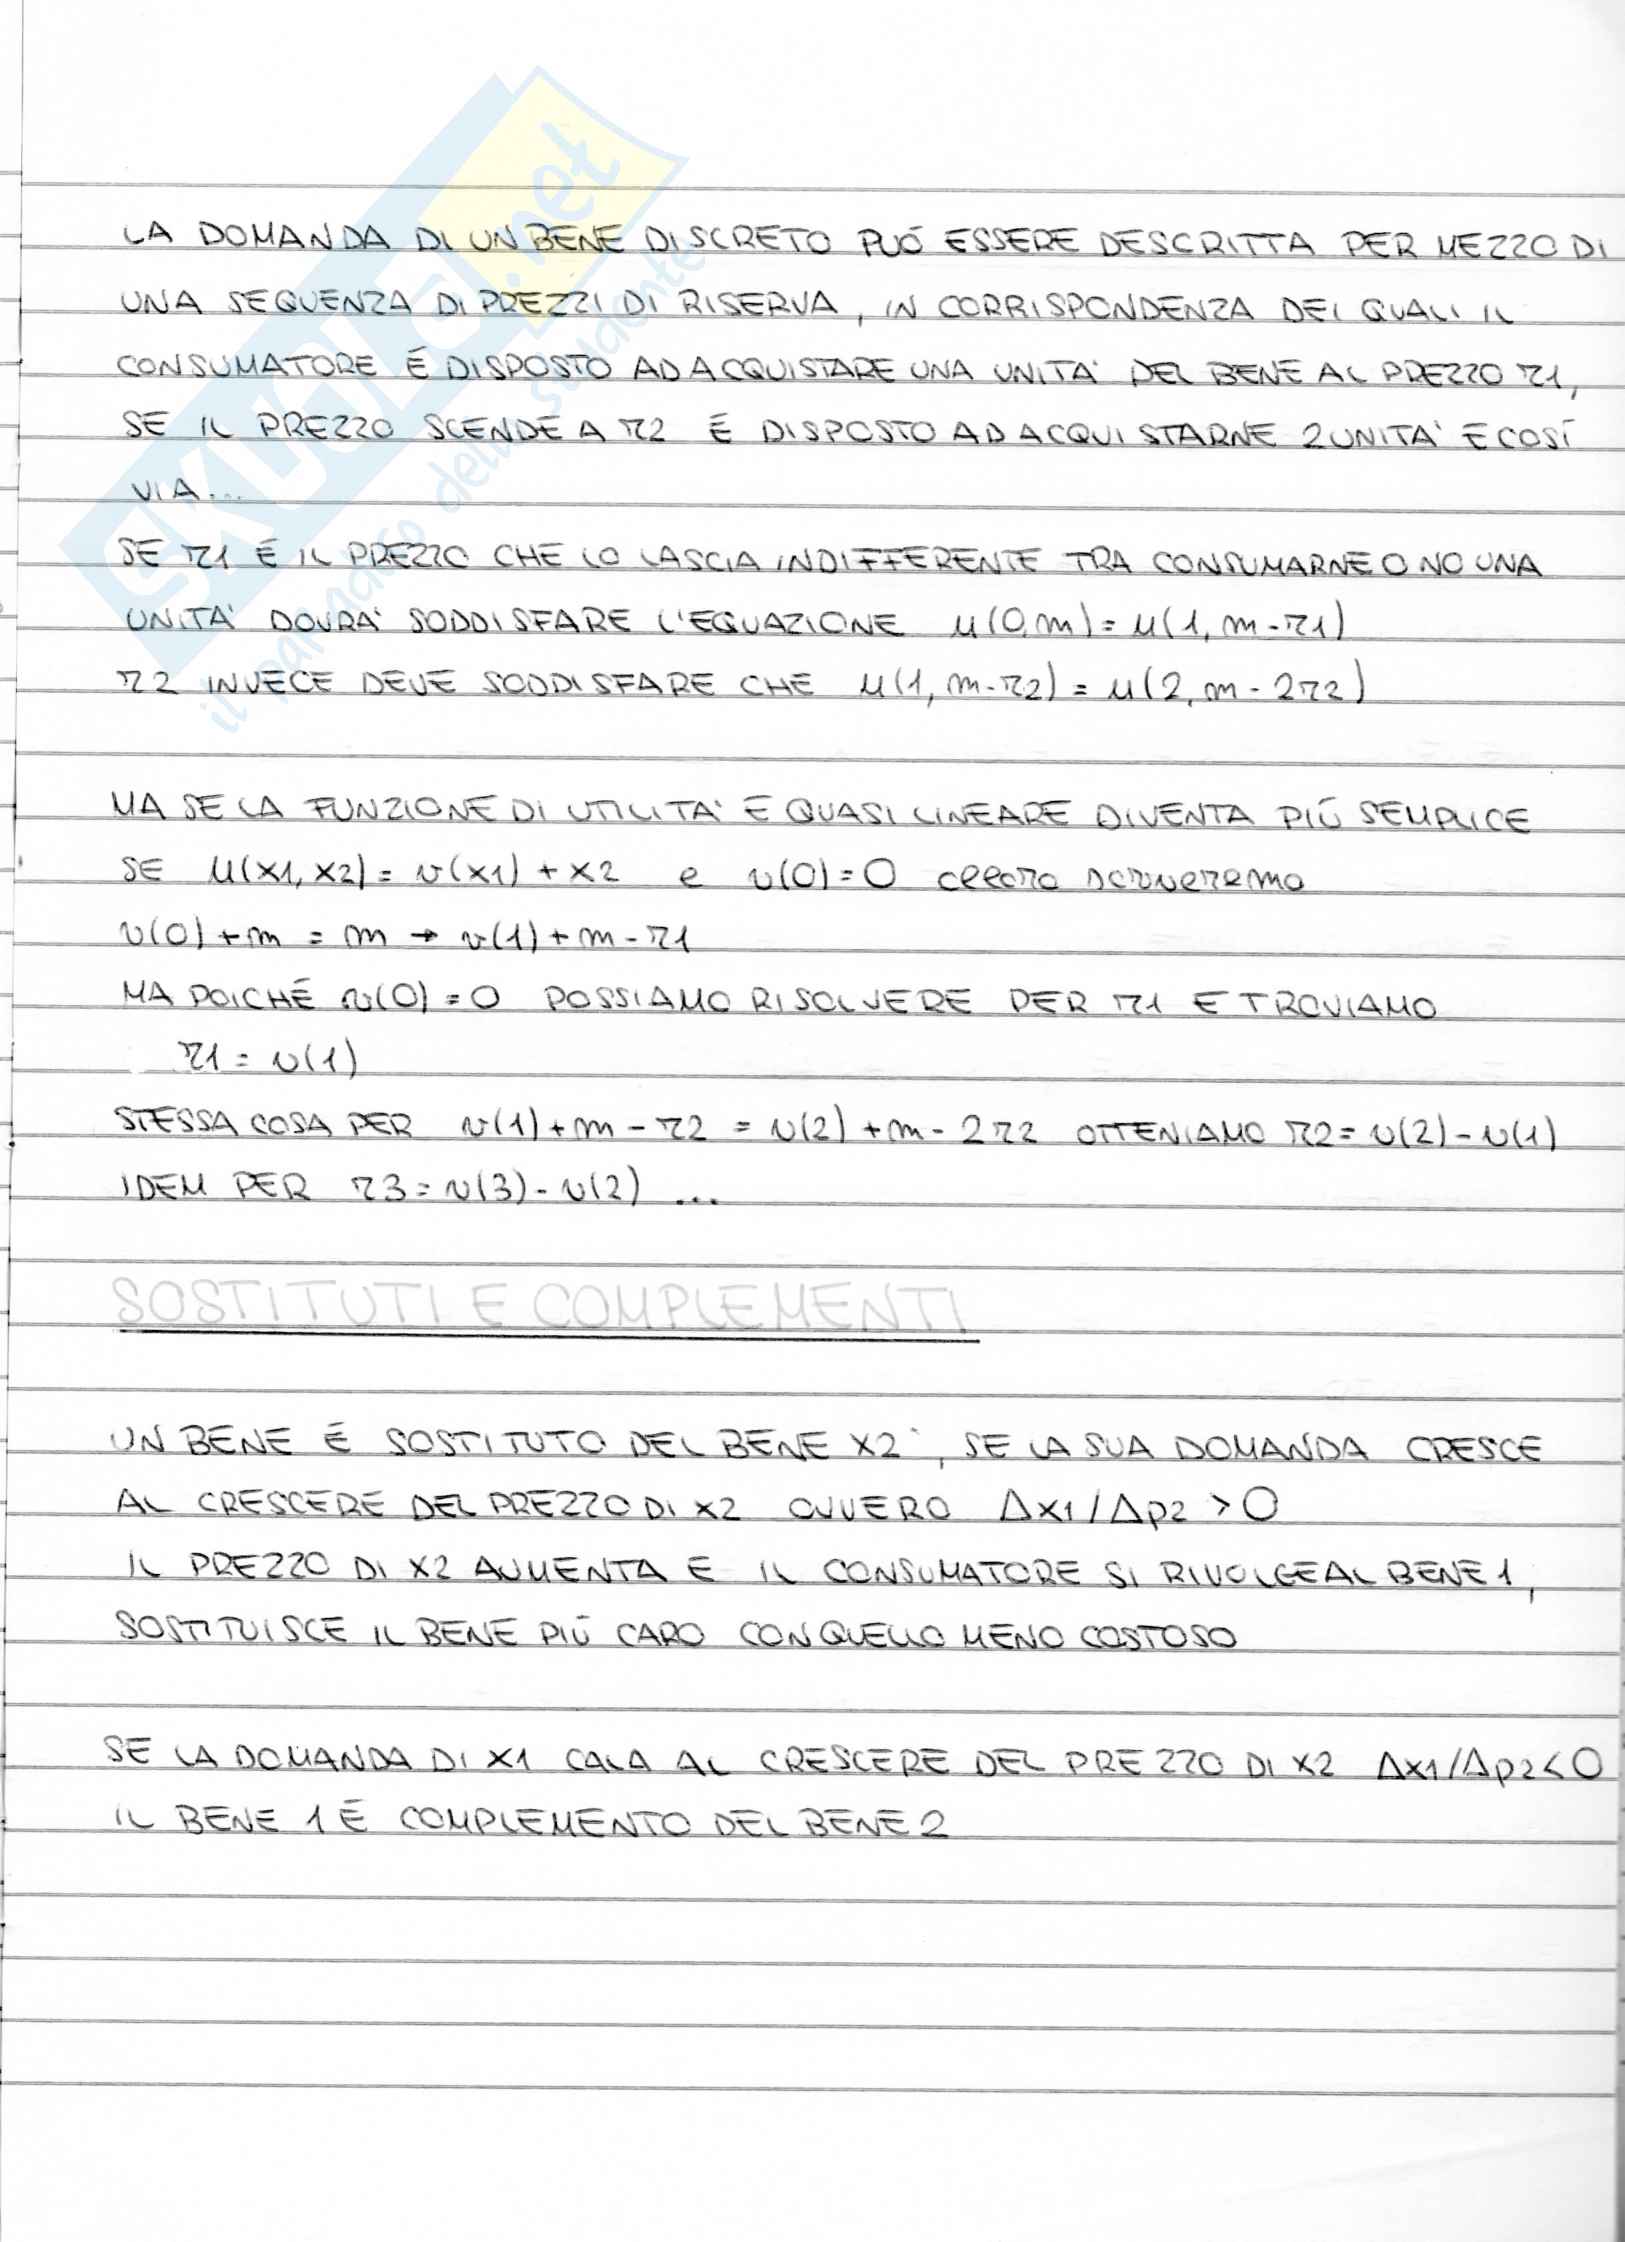 SKUOLA.net
il paradiso dello studente
LA DOMANDA DI UN BENE DISCRETO PUÓ ESSERE DESCRITTA PER MEZZO DI
UNA SEQUENZA DI PREZZI DI RISERVA, IN CORRISPONDENZA DEI QUALI IL
CONSUMATORE É DISPOSTO AD ACQUISTARE UNA UNITA' DEL BENE AL PREZZO r1,
SE IL PREZZO SCENDE A r2 É DISPOSTO AD ACQUISTARNE 2 UNITA' E COSÍ
VIA...
SE r1 É IL PREZZO CHE LO LASCIA INDIFFERENTE TRA CONSUMARNE O NO UNA
UNITA' DOVRA' SODDISFARE L'EQUAZIONE u(0,m) = u(1, m-r1)
r2 INVECE DEVE SODDISFARE CHE u(1, m-r2) = u(2, m-2r2)
MA SE LA FUNZIONE DI UTILITA' É QUASI LINEARE DIVENTA PIÚ SEMPLICE
SE u(x1, x2) = v(x1) + x2 e v(0) = 0 allora scriveremo
v(0) + m = m → v(1) + m - r1
MA POICHÉ v(0) = 0 POSSIAMO RISOLVERE PER r1 E TROVIAMO
r1 = v(1)
STESSA COSA PER v(1) + m - r2 = v(2) + m - 2r2 OTTENIAMO r2 = v(2) - v(1)
IDEM PER r3 = v(3) - v(2) ...
SOSTITUTI E COMPLEMENTI
UN BENE É SOSTITUTO DEL BENE X2, SE LA SUA DOMANDA CRESCE
AL CRESCERE DEL PREZZO DI X2 OVVERO Δx1/Δp2 > 0
IL PREZZO DI X2 AUMENTA E IL CONSUMATORE SI RIVOLGE AL BENE 1,
SOSTITUISCE IL BENE PIÚ CARO CON QUELLO MENO COSTOSO
SE LA DOMANDA DI X1 CALA AL CRESCERE DEL PREZZO DI X2 Δx1/Δp2 < 0
IL BENE 1 É COMPLEMENTO DEL BENE 2